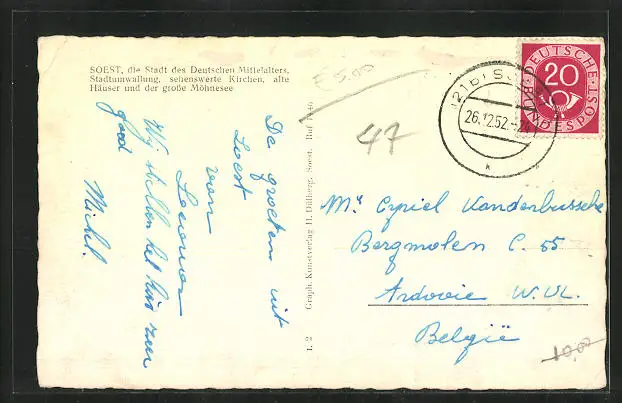 SOEST, die Stadt des Deutschen Mittelalters,
Stadtumwallung, sehenswerte Kirchen, alte
Häuser und der große Möhnesee
De groeten uit
Soest
van
Leconor
Wij stellen het hier zeer
goed
Michel.
L 2 Graph. Kunstverlag H. Dülberg, Soest. Ruf
E 5.00
47
(21b) S
26.12.52.
DEUTSCHE BUNDESPOST
20
Mr Cyriel Vanderbussche
Bergmolen C. 55
Ardooie W. Vl.
België
10,00